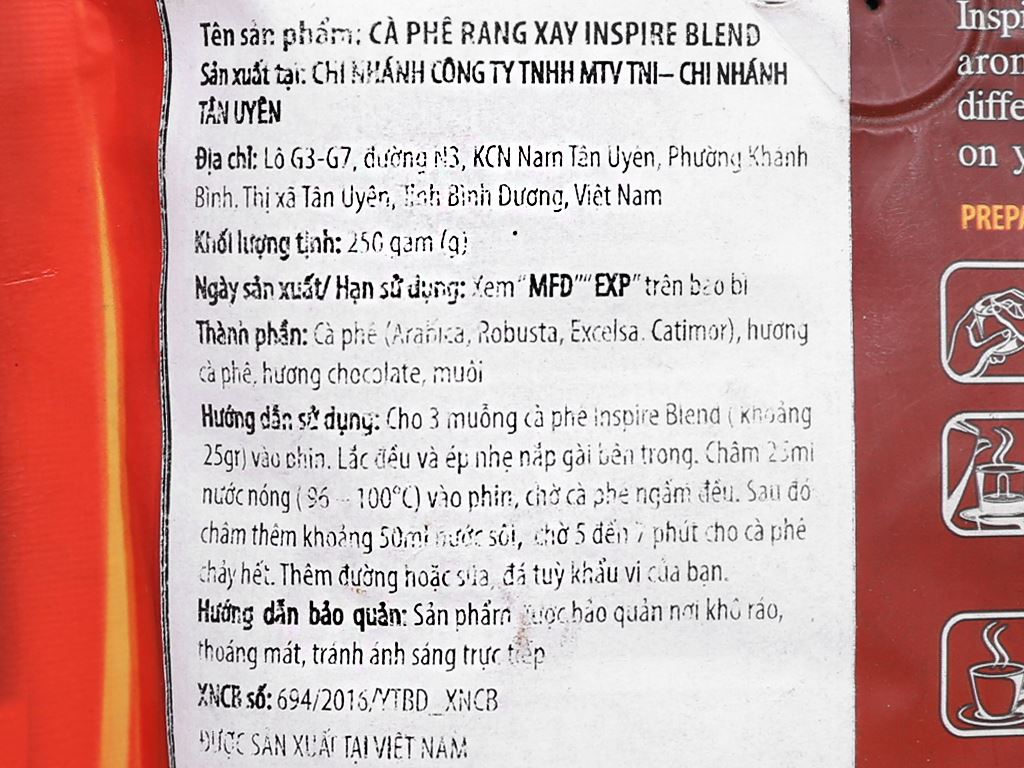 Tên sản phẩm: CÀ PHÊ RANG XAY INSPIRE BLEND
Sản xuất tại: CHI NHÁNH CÔNG TY TNHH MTV TNI– CHI NHÁNH
TÂN UYÊN
Địa chỉ: Lô G3-G7, đường N3, KCN Nam Tân Uyên, Phường Khánh
Bình, Thị xã Tân Uyên, Tỉnh Bình Dương, Việt Nam
Khối lượng tịnh: 250 gam (g)
Ngày sản xuất/ Hạn sử dụng: Xem "MFD" "EXP" trên bao bì
Thành phần: Cà phê (Arabica, Robusta, Excelsa. Catimor), hương
cà phê, hương chocolate, muối
Hướng dẫn sử dụng: Cho 3 muỗng cà phê Inspire Blend ( khoảng
25gr) vào phin. Lắc đều và ép nhẹ nắp gài bên trong. Châm 25ml
nước nóng ( 96 – 100°C) vào phin, chờ cà phê ngấm đều. Sau đó
châm thêm khoảng 50ml nước sôi, chờ 5 đến 7 phút cho cà phê
chảy hết. Thêm đường hoặc sữa, đá tuỳ khẩu vị của bạn.
Hướng dẫn bảo quản: Sản phẩm được bảo quản nơi khô ráo,
thoáng mát, tránh ánh sáng trực tiếp
XNCB số: 694/2016/YTBD_XNCB
ĐƯỢC SẢN XUẤT TẠI VIỆT NAM
on